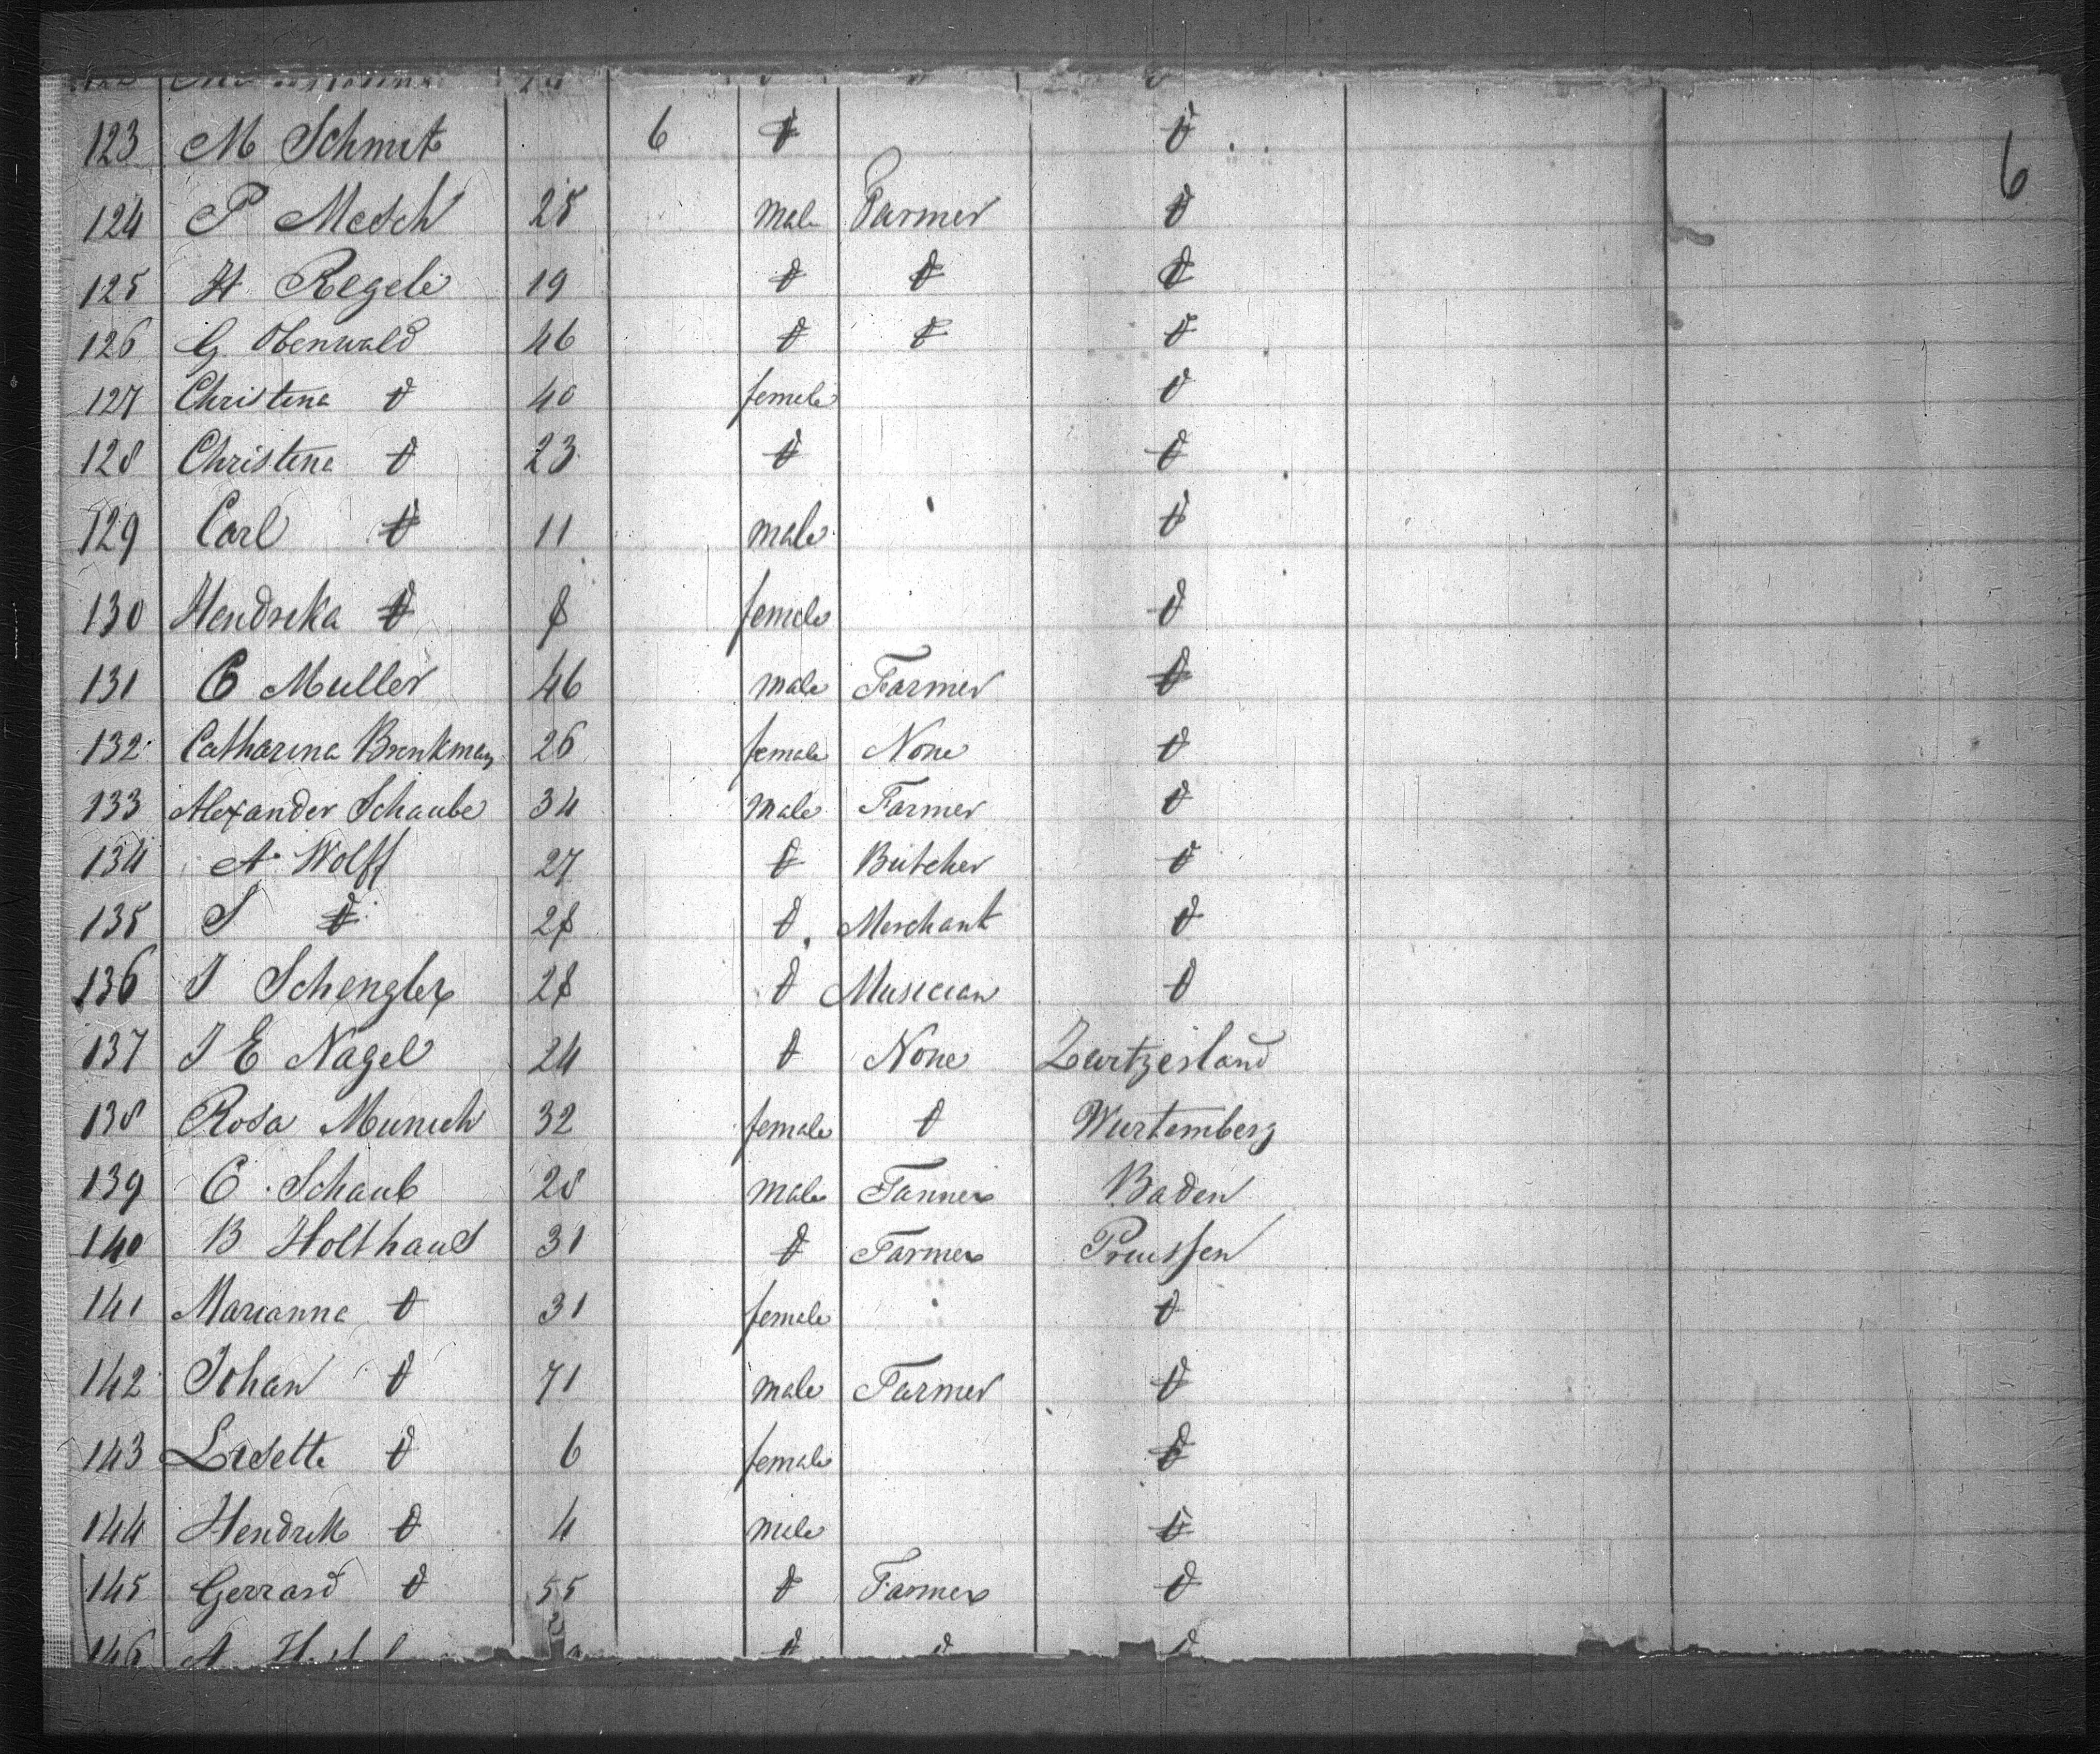 6
123 M Schmit 6 d d
124 P Mesch 25 male Farmer d
125 H Regele 19 d d d
126 G Obenwald 46 d d d
127 Christena d 40 female d
128 Christena d 23 d d
129 Carl d 11 male d
130 Hendrika d 8 female d
131 C Muller 46 male Farmer d
132 Catharina Brenkman 26 female None d
133 Alexander Schaube 34 male Farmer d
134 A Wolff 27 d Butcher d
135 S d 28 d Merchant d
136 J Schengler 28 d Musician d
137 J E Nagel 24 d None Zwitzerland
138 Rosa Munich 32 female d Wurtemberg
139 C Schaub 28 male Tanner Baden
140 B Holthaus 31 d Farmer Preussen
141 Marianna d 31 female d
142 Johan d 71 male Farmer d
143 Lisette d 6 female d
144 Hendrik d 4 male d
145 Gerrard d 55 d Farmer d
146 A d d d